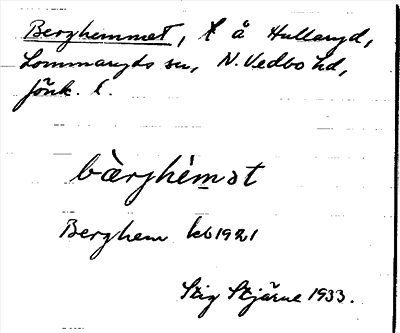 Berghemmet, t å Hullaryd,
Lommaryds sn, N. Vedbo hd,
Jönk. l.
bàrghèmət
Berghem kb 1921
Stig Stjärne 1933.